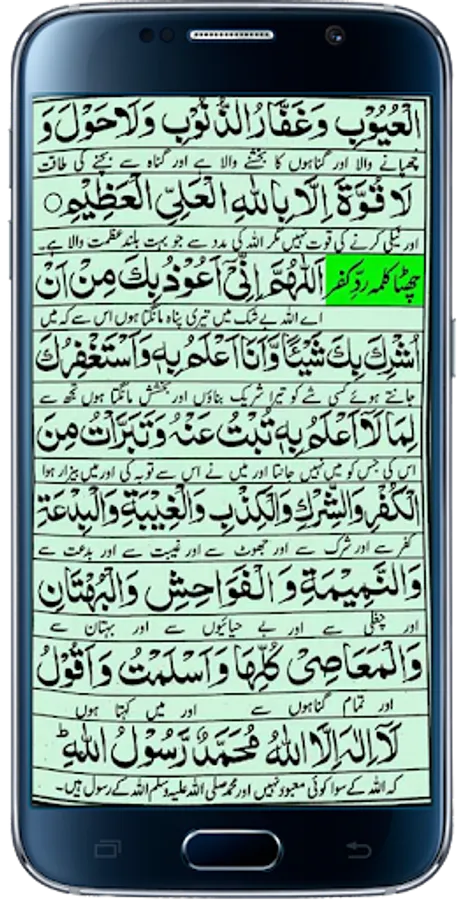 الْعُيُوْبِ وَغَفَّارُ الذُّنُوْبِ وَلَا حَوْلَ وَ
چھپانے والا اور گناہوں کا بخشنے والا ہے اور گناہ سے بچنے کی طاقت
لَا قُوَّةَ اِلَّا بِاللهِ الْعَلِيِّ الْعَظِيْمِ○
اور نیکی کرنے کی قوت نہیں مگر اللہ کی مدد سے جو بہت بلند عظمت والا ہے۔
چھٹا کلمہ ردِّ کفر اَللّٰهُمَّ اِنِّیْٓ اَعُوْذُ بِكَ مِنْ اَنْ
اے اللہ بے شک میں تیری پناہ مانگتا ہوں اس سے کہ میں
اُشْرِكَ بِكَ شَيْئًا وَّاَنَا اَعْلَمُ بِهٖ وَاَسْتَغْفِرُكَ
جانتے ہوئے کسی شے کو تیرا شریک بناؤں اور بخشش مانگتا ہوں تجھ سے
لِمَا لَآ اَعْلَمُ بِهٖ تُبْتُ عَنْهُ وَتَبَرَّاْتُ مِنَ
اس کی جس کو میں نہیں جانتا اور میں نے اس سے توبہ کی اور میں بیزار ہوا
الْكُفْرِ وَالشِّرْكِ وَالْكِذْبِ وَالْغِيْبَةِ وَالْبِدْعَةِ
کفر سے اور شرک سے اور جھوٹ سے اور غیبت سے اور بدعت سے
وَالنَّمِيْمَةِ وَ الْفَوَاحِشِ وَالْبُهْتَانِ
اور چغلی سے اور بے حیائیوں سے اور بہتان سے
وَالْمَعَاصِیْ كُلِّهَا وَاَسْلَمْتُ وَاَقُوْلُ
اور تمام گناہوں سے اور میں کہتا ہوں
لَآ اِلٰهَ اِلَّا اللهُ مُحَمَّدٌ رَّسُوْلُ اللهِ ؕ
کہ اللہ کے سوا کوئی معبود نہیں اور محمد صلی اللہ علیہ وسلم اللہ کے رسول ہیں۔